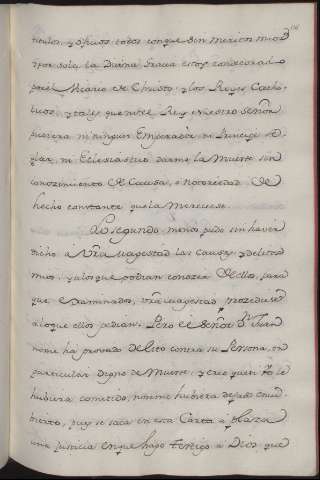 titulos, y officios todos con que sin meritos mios
y por sola la Divina gracia estoy condecorado
por el Vicario de Christo y los Reyes Catho-
licos, y tales que ni el Rey Nuestro Señor
pudiera ni ningun Emperador ni Principe se-
glar, ni Eclesiastico darme la Muerte sin
conozimiento de Causa, o notoriedad de
hecho constante que la Mereciese.
Lo segundo menos pudo sin haver
dicho a Vra Magestad las Causas, y delitos
mios, y a los que podian conozer de ellos, para
que examinados, vra Magestad prozediese
a lo que ellos pedian. Pero el Señor Dn Juan
no me ha provado delito contra su Persona, en
particular digno de Muerte, y creo que si yo le
hubiera cometido, no me hubiera dejado encu-
bierto, pues se saca en esta Carta a plaza
una justicia en que hago testigo a Dios que